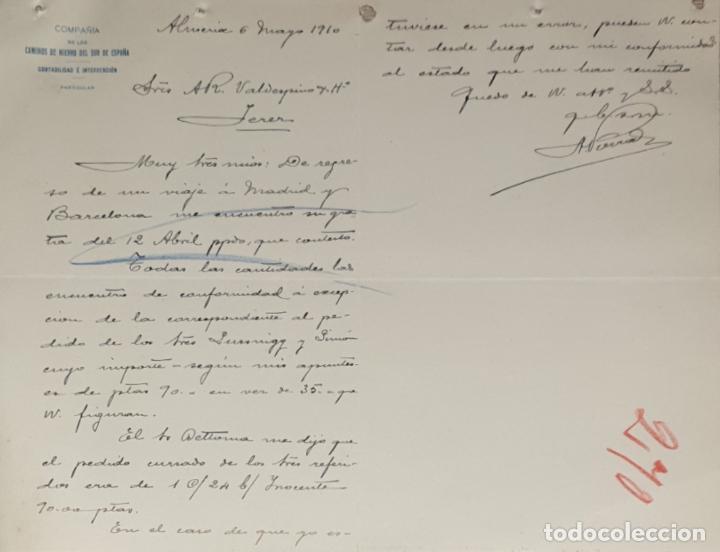 COMPAÑÍA
DE LOS
CAMINOS DE HIERRO DEL SUR DE ESPAÑA
CONTABILIDAD É INTERVENCIÓN
PARTICULAR
Almería 6 Mayo 1910
Sres A R. Valdespino y Hº
Jerez
Muy sres mios: De regre-
so de un viaje á Madrid y
Barcelona me encuentro su gra-
ta del 12 Abril ppdo, que contesto.
Todas las cantidades las
encuentro de conformidad á excep-
cion de la correspondiente al pe-
dido de los sres y Simón
cuyo importe - según mis apuntes
es de ptas 90.- en vez de 35.- qe
V. figuran.
El Sr me dijo que
el pedido cursado de los sres referi-
dos era de 1 C/24 b/ Inocente
90.00 ptas.
En el caso de que yo es-
tuviese en un error, pueden V. con-
tar desde luego con mi conformidad
al estado que me han remitido
Quedo de V. attº y S.S.
q b s m
270
todocoleccion.net